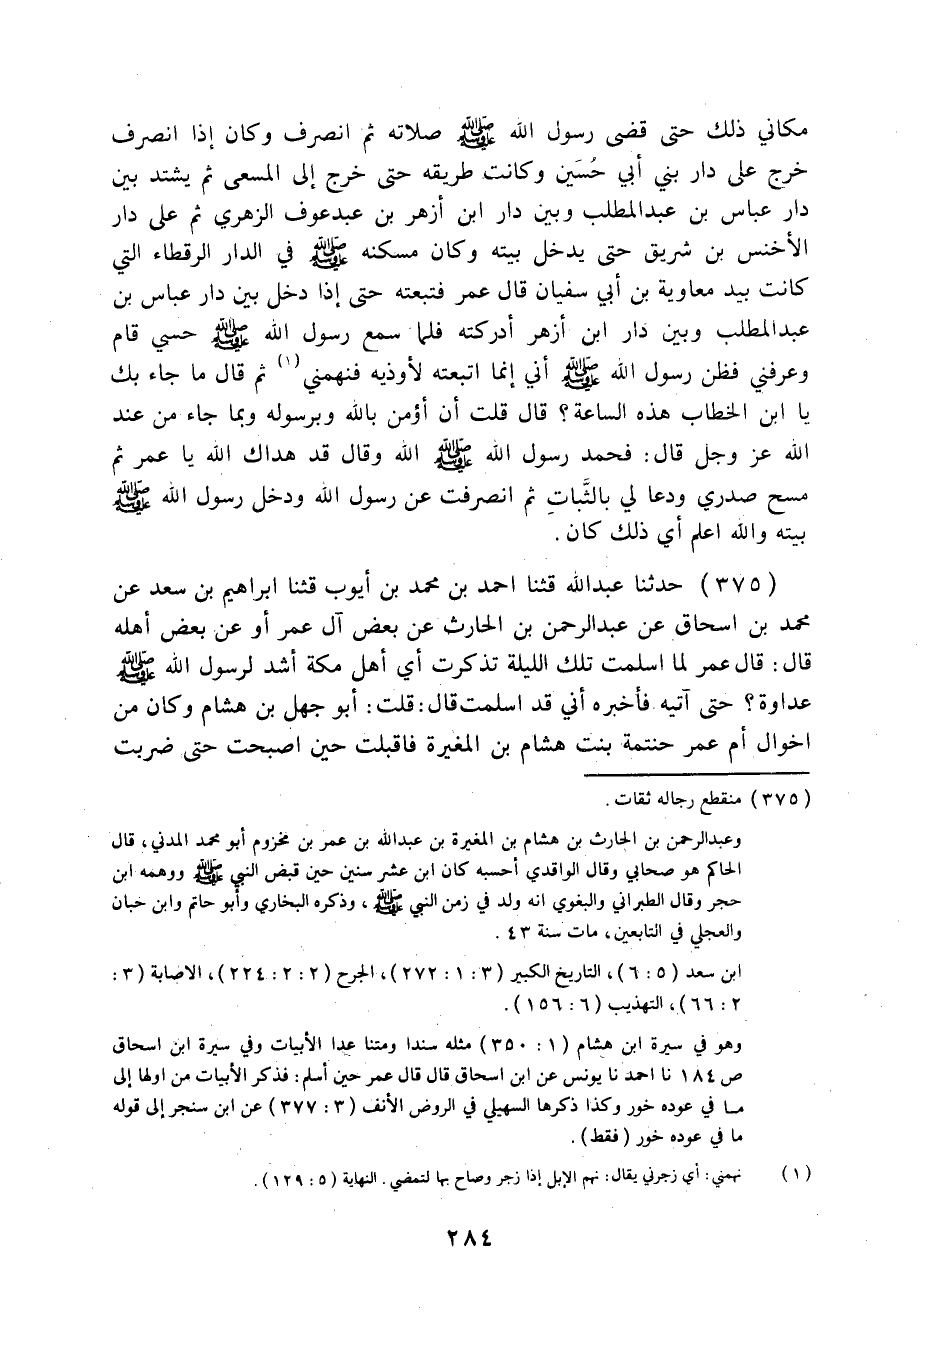 مكاني ذلك حتى قضى رسول الله ﷺ صلاته ثم انصرف وكان إذا انصرف
خرج على دار بني أبي حُسَين وكانت طريقه حتى خرج إلى المسعى ثم يشتد بين
دار عباس بن عبدالمطلب وبين دار ابن أزهر بن عبدعوف الزهري ثم على دار
الأخنس بن شريق حتى يدخل بيته وكان مسكنه ﷺ في الدار الرقطاء التي
كانت بيد معاوية بن أبي سفيان قال عمر فتبعته حتى إذا دخل بين دار عباس بن
عبدالمطلب وبين دار ابن أزهر أدركته فلما سمع رسول الله ﷺ حسي قام
وعرفني فظن رسول الله ﷺ أني إنما اتبعته لأوذيه فنهمني(١) ثم قال ما جاء بك
يا ابن الخطاب هذه الساعة؟ قال قلت أن أؤمن بالله وبرسوله وبما جاء من عند
الله عز وجل قال: فحمد رسول الله ﷺ الله وقال قد هداك الله يا عمر ثم
مسح صدري ودعا لي بالثَّباتِ ثم انصرفت عن رسول الله ودخل رسول الله ﷺ
بيته والله اعلم أي ذلك كان.
(٣٧٥) حدثنا عبدالله قثنا احمد بن محمد بن أيوب قثنا ابراهيم بن سعد عن
محمد بن اسحاق عن عبدالرحمن بن الحارث عن بعض آل عمر أو عن بعض أهله
قال: قال عمر لما اسلمت تلك الليلة تذكرت أي أهل مكة أشد لرسول الله ﷺ
عداوة؟ حتى آتيه فأخبره أني قد اسلمت قال: قلت: أبو جهل بن هشام وكان من
اخوال أم عمر حنتمة بنت هشام بن المغيرة فاقبلت حين اصبحت حتى ضربت
(٣٧٥) منقطع رجاله ثقات.
وعبدالرحمن بن الحارث بن هشام بن المغيرة بن عبدالله بن عمر بن مخزوم أبو محمد المدني، قال
الحاكم هو صحابي وقال الواقدي أحسبه كان ابن عشر سنين حين قبض النبي ﷺ ووهمه ابن
حجر وقال الطبراني والبغوي انه ولد في زمن النبي ﷺ، وذكره البخاري وأبو حاتم وابن حبان
والعجلي في التابعين، مات سنة ٤٣.
ابن سعد (٥: ٦)، التاريخ الكبير (٣: ١: ٢٧٢)، الجرح (٢: ٢: ٢٢٤)، الاصابة (٣:
٢: ٦٦)، التهذيب (٦: ١٥٦).
وهو في سيرة ابن هشام (١: ٣٥٠) مثله سندا ومتنا عدا الأبيات وفي سيرة ابن اسحاق
ص ١٨٤ نا احمد نا يونس عن ابن اسحاق قال قال عمر حين أسلم: فذكر الأبيات من اولها إلى
مـا في عوده خور وكذا ذكرها السهيلي في الروض الأنف (٣: ٣٧٧) عن ابن سنجر إلى قوله
ما في عوده خور (فقط).
(١) نهمني: أي زجرني يقال: نهم الإبل إذا زجر وصاح بها لتمضي. النهاية (٥: ١٢٩).
٢٨٤